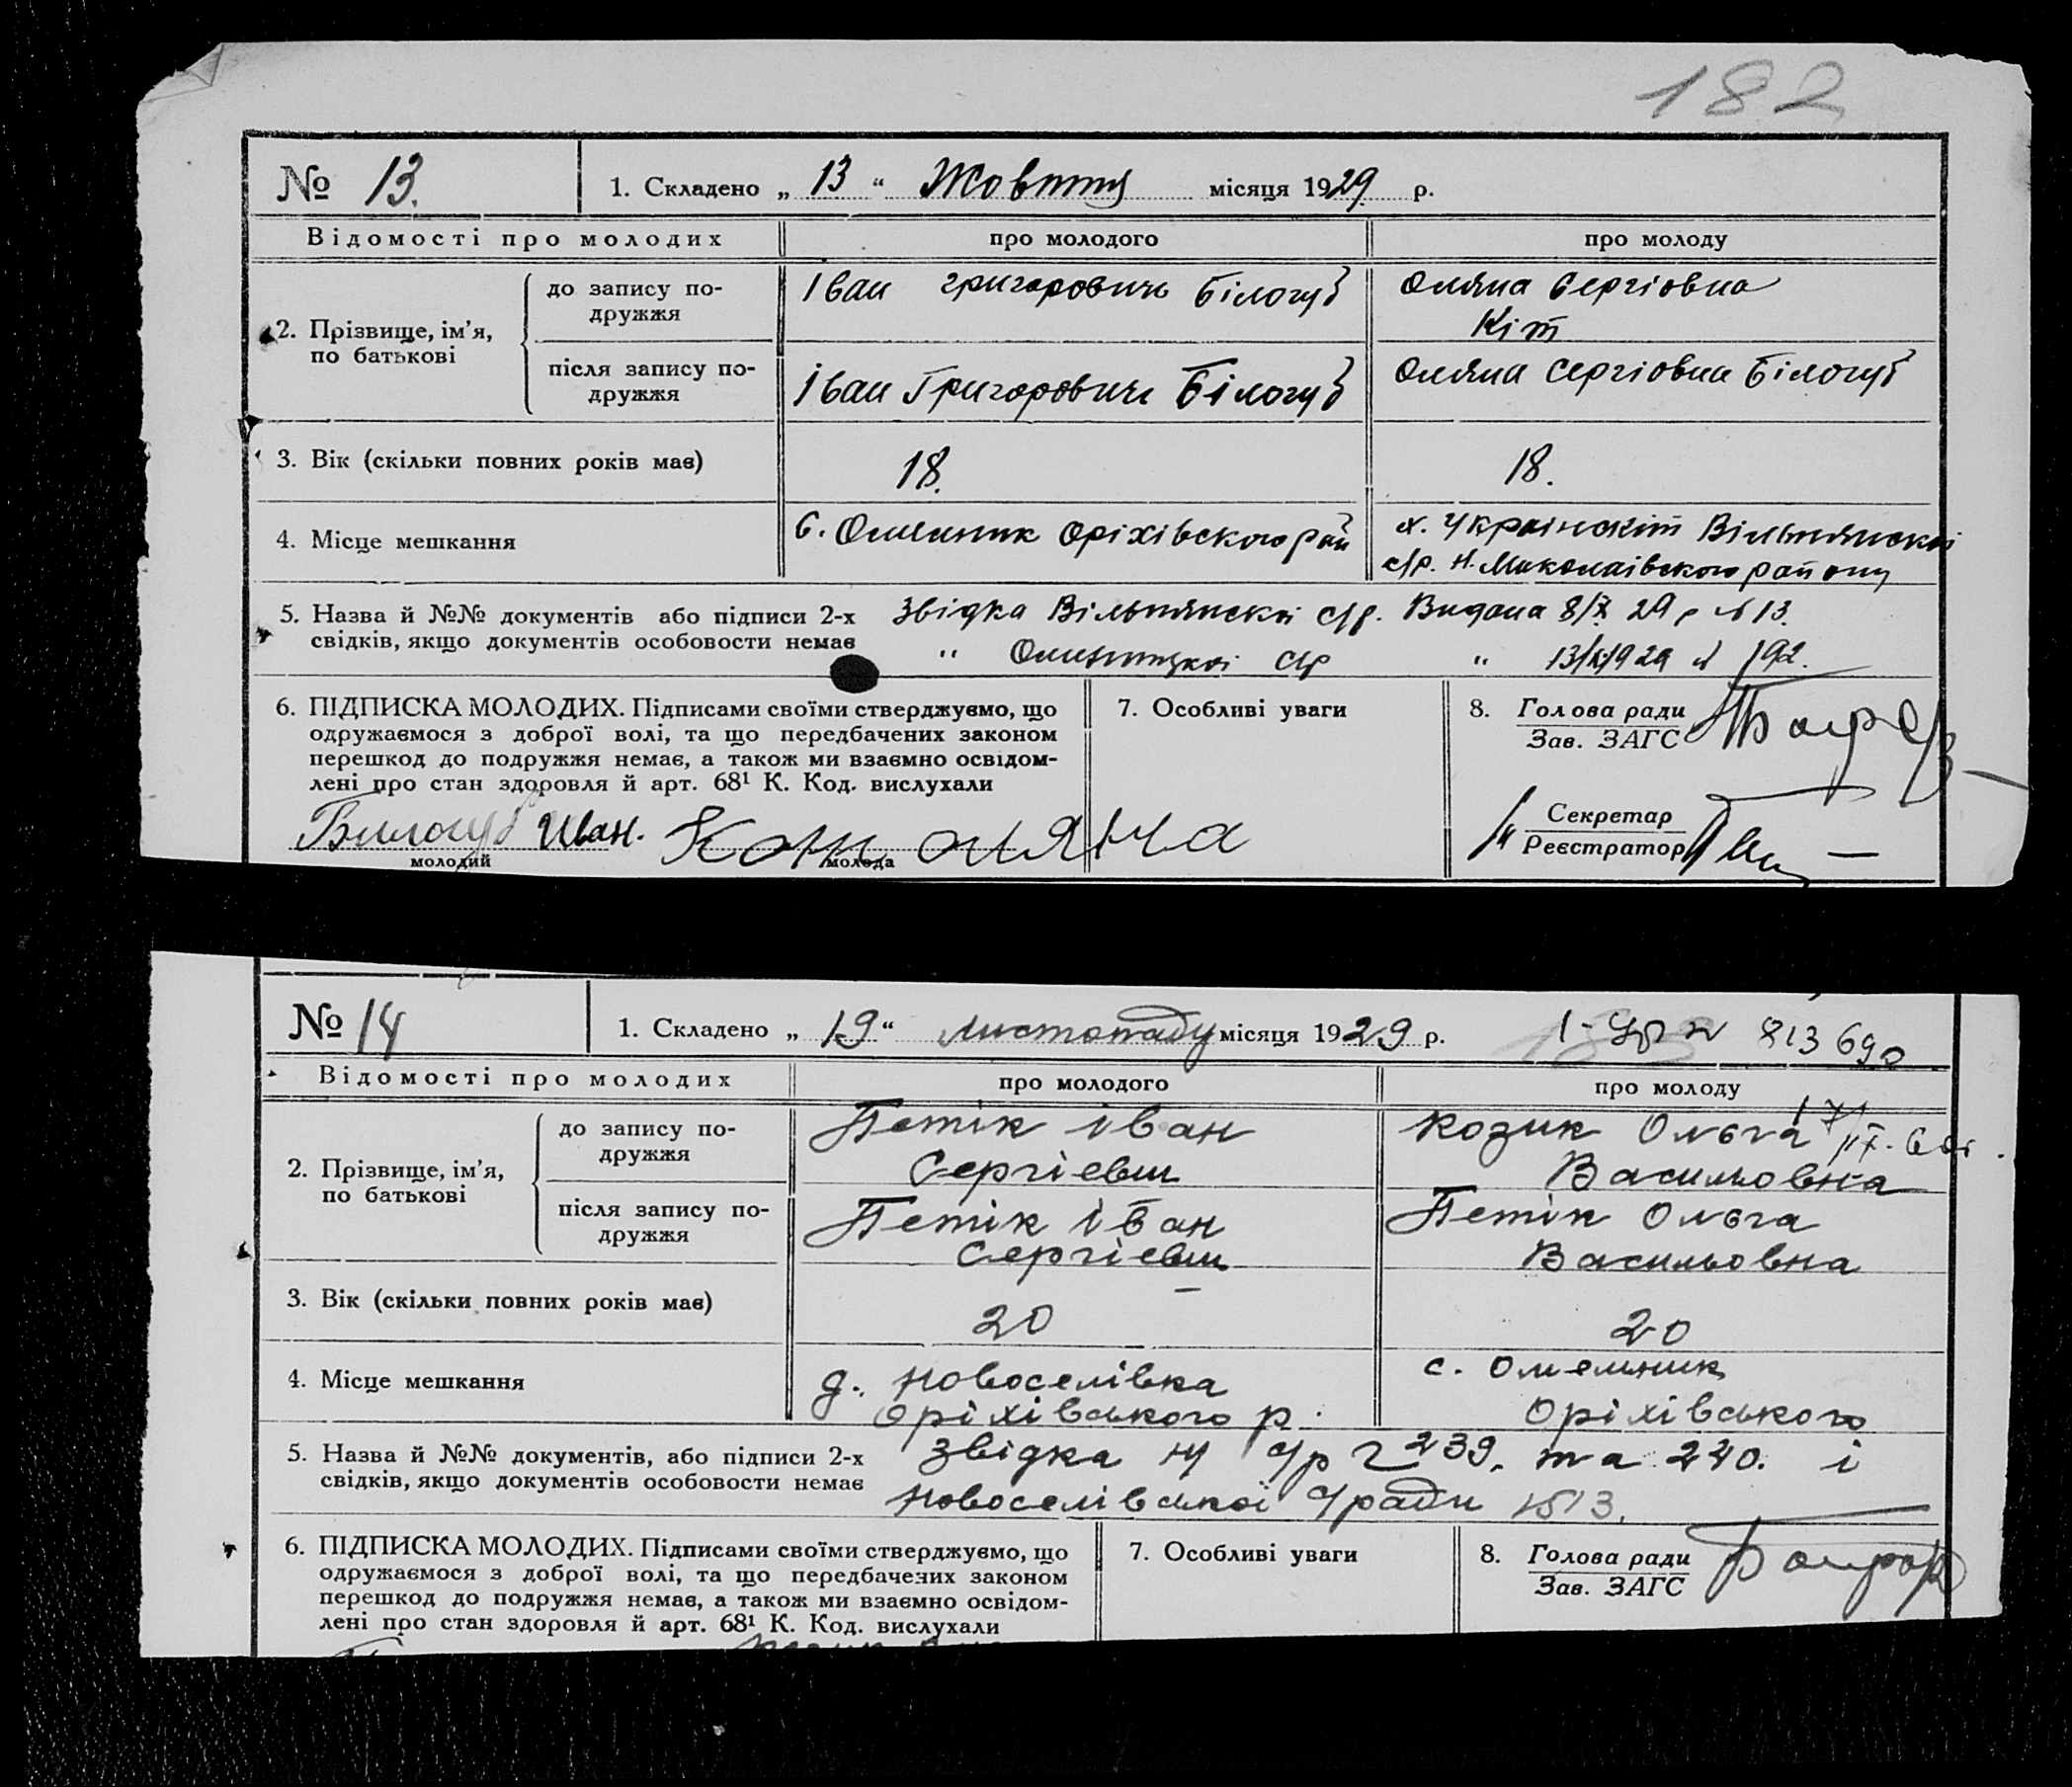 182
№ 13. 1. Складено „ 13 “ Жовтня місяця 1929 р.
Відомості про молодих про молодого про молоду
2. Прізвище, ім’я, по батькові
до запису подружжя Іван григорович Білогуб Оляна Сергіовна
Кіт
після запису подружжя Іван Григорович Білогуб Оляна Сергіовна Білогуб
3. Вік (скільки повних років має) 18. 18.
4. Місце мешкання с. Омельник Оріхівского рай х. Українскіт Вільнянскої
с/р. Н. Миколаівского району
5. Назва й №№ документів або підписи 2-х Звідка Вільнянскої с/р. Видана 8/X 29 р № 13.
свідків, якщо документів особовости немає " Омельницкоі с/р " 13/X 1929 № 192.
6. ПІДПИСКА МОЛОДИХ. Підписами своїми стверджуємо, що
одружаємося з доброї волі, та що передбачених законом
перешкод до подружжя немає, а також ми взаємно освідом-
лені про стан здоровля й арт. 68¹ К. Код. вислухали
7. Особливі уваги
8. Голова ради
Зав. ЗАГС
Секретар
Реєстратор
Билогуб Иван. Кот оляна
молодий молода
№ 14 1. Складено „ 19 “ листопаду місяця 1929 р. 813690
Відомості про молодих про молодого про молоду
2. Прізвище, ім’я, по батькові
до запису подружжя Петік іван Козик Ольга
Сергієвич Васильовна
після запису подружжя Петік іван Петік Ольга
Сергієвич Васильовна
3. Вік (скільки повних років має) 20 20
4. Місце мешкання д. Новоселівка с. Омельник
Оріхівського р. Оріхівського
5. Назва й №№ документів, або підписи 2-х Звідка с/р 239. та 240. і
свідків, якщо документів особовости немає Новоселівської с/ради №13.
6. ПІДПИСКА МОЛОДИХ. Підписами своїми стверджуємо, що
одружаємося з доброї волі, та що передбачених законом
перешкод до подружжя немає, а також ми взаємно освідом-
лені про стан здоровля й арт. 68¹ К. Код. вислухали
7. Особливі уваги
8. Голова ради
Зав. ЗАГС